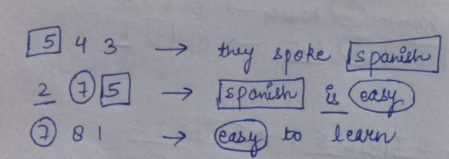 5 4 3 → they spoke spanish
2 7 5 → spanish is easy
7 8 1 → easy to learn